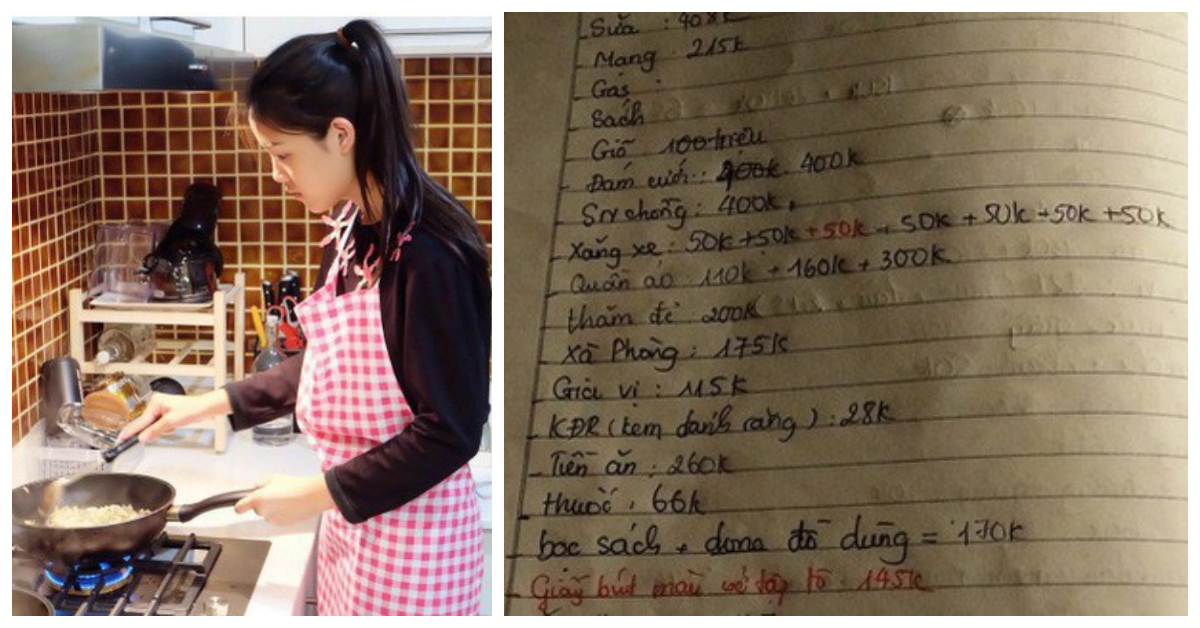 - Sữa : 408k
- Mạng 215k
- Gas :
- Sách
- Giỗ 100 triệu
- Đám cưới : 400k
- SN chồng : 400k
- Xăng xe : 50k + 50k + 50k + 50k + 50k + 50k + 50k
- Quần áo : 110k + 160k + 300k
- thăm đẻ 200k
- Xà Phòng : 175k
- Gia vị : 115k
- KĐR (kem đánh răng) : 28k
- Tiền ăn : 260k
- thuốc : 66k
- bọc sách + đồ dùng = 170k
- Giấy bút màu vẽ tập tô : 145k